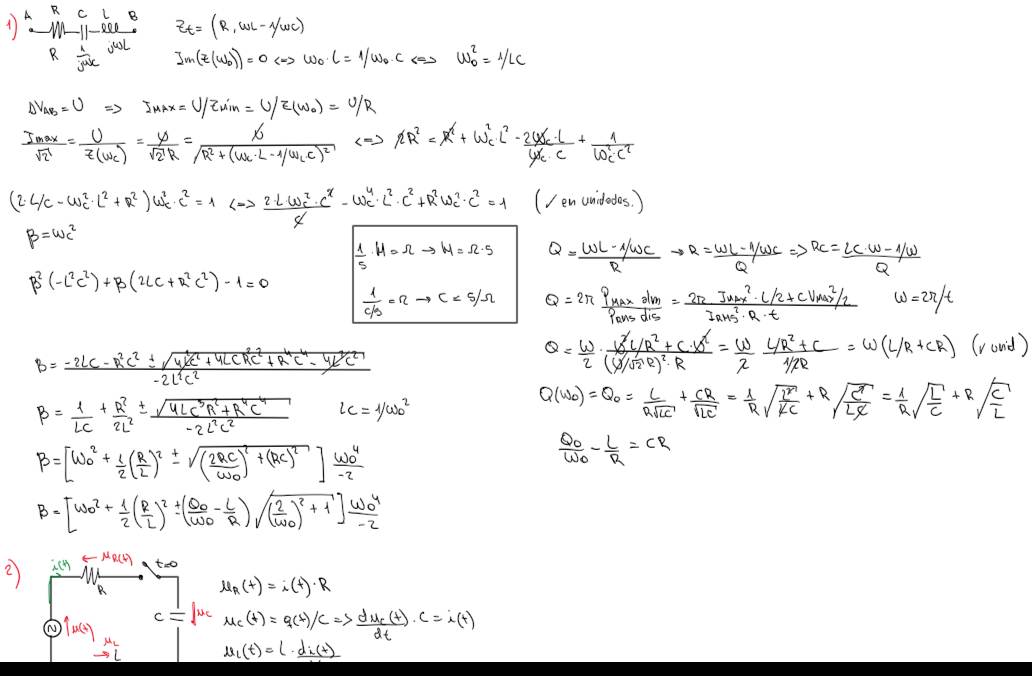 1) A R C L B
R 1/jωC jωL
Zt = (R, ωL - 1/ωC)
Im(Z(ω0)) = 0 <=> ω0·L = 1/ω0·C <=> ω0² = 1/LC
ΔVAB = U => IMAX = U/Zmin = U/Z(ω0) = U/R
Imax/√2 = U/Z(ωc) = U/√2R = U/√(R² + (ωc·L - 1/ωc·C)²) <=> 2R² = R² + ωc²·L² - 2ωc·L/ωc·C + 1/ωc²·C²
(2·L/C - ωc²·L² + R²)ωc²·C² = 1 <=> 2·L·ωc²·C²/C - ωc⁴·L²·C² + R²ωc²·C² = 1 (✓ en unidades.)
β = ωc²
β²(-L²C²) + β(2LC + R²C²) - 1 = 0
1/s · H = Ω → H = Ω·s
1/(C/s) = Ω → C = s/Ω
β = (-2LC - R²C² ± √(4L²C² + 4LCR²C² + R⁴C⁴ - 4L²C²))/-2L²C²
β = 1/LC + R²/2L² ± √(4LC³R² + R⁴C⁴)/-2L²C² LC = 1/ω0²
β = [ω0² + 1/2(R/L)² ± √((2RC/ω0)² + (RC)²)] ω0⁴/-2
β = [ω0² + 1/2(R/L)² ± (Q0/ω0 - L/R)√((2/ω0)² + 1)] ω0⁴/-2
Q = (ωL - 1/ωC)/R → R = (ωL - 1/ωC)/Q => RC = (LC·ω - 1/ω)/Q
Q = 2π PMAX alm/PRMS dis = (2π IMAX²·L/2 + CVMAX²/2)/(IRMS²·R·t) ω = 2π/t
Q = ω/2 · (U²L/R² + C·U²)/((U/√2R)²·R) = ω/2 (L/R² + C)/(1/2R) = ω(L/R + CR) (✓ unid)
Q(ω0) = Q0 = L/R√LC + CR/√LC = 1/R √(L²/LC) + R√(C²/LC) = 1/R √(L/C) + R√(C/L)
Q0/ω0 - L/R = CR
2) i(t) ← uR(t) t=0
R
C ↓uC
↑u(t)
uL
→ L
uR(t) = i(t)·R
uC(t) = q(t)/C => duC(t)/dt · C = i(t)
uL(t) = L·di(t)